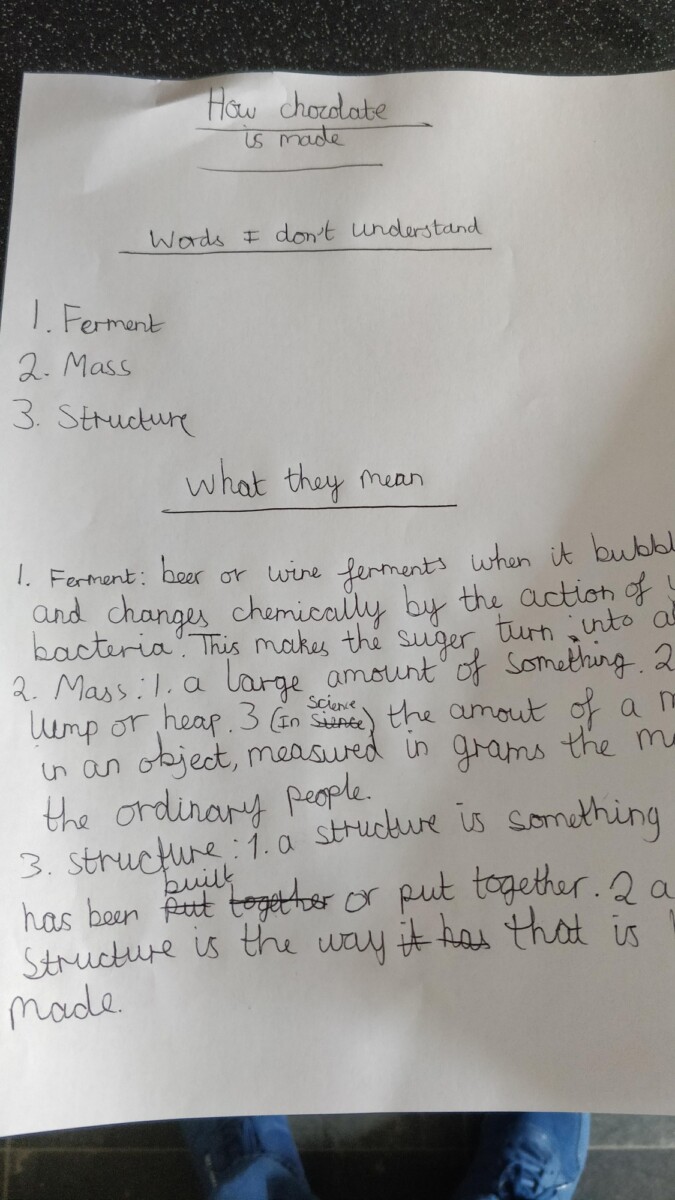 How chocolate
is made
Words I don't understand
1. Ferment
2. Mass
3. Structure
What they mean
1. Ferment: beer or wine ferments when it bubbl
and changes chemically by the action of
bacteria. This makes the suger turn into
2. Mass: 1. a large amount of something. 2
lump or heap. 3 (In Science) the amout of a m
in an object, measured in grams the m
the ordinary people.
3. structure: 1. a structure is something
has been built or put together. 2 a
Structure is the way that is
made.